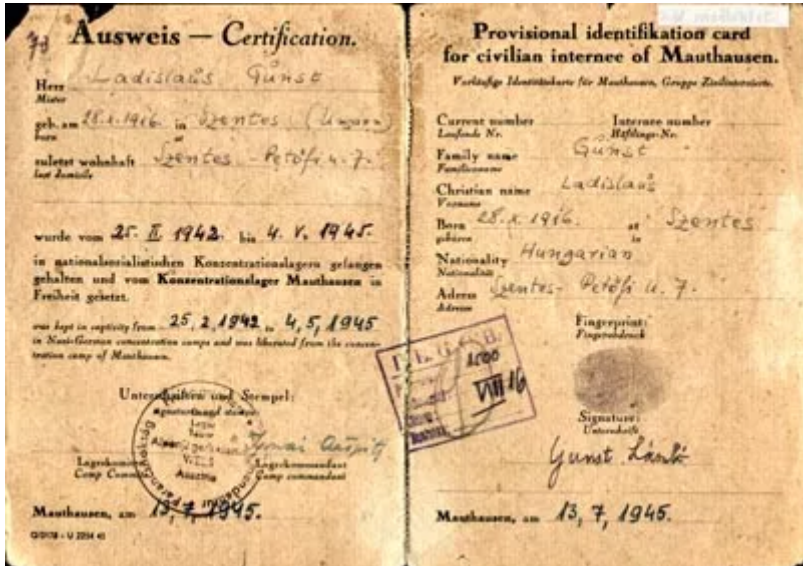 78
Ausweis — Certification.
Herr Ladislaus Günst
Mister
geb. am 28.X.1916. in Szentes (Ungarn)
born at
zuletzt wohnhaft Szentes - Petöfi u. 7.
last domicile
wurde vom 25. II. 1942. bis 4. V. 1945.
in nationalsozialistischen Konzentrationslagern gefangen
gehalten und vom Konzentrationslager Mauthausen in
Freiheit gesetzt.
was kept in captivity from 25,2,1942 to 4,5,1945
in Nazi-German concentration camps and was liberated from the concen-
tration camp of Mauthausen.
Unterschriften und Stempel:
signatures and stamps:
Lager
WELS
Austria
Lagerkommandant
Camp Commandant Camp commandant
Mauthausen, am 13,7,1945.
Provisional identifikation card
for civilian internee of Mauthausen.
Vorläufige Identitätskarte für Mauthausen, Gruppe Zivilinternierte.
Current number Internee number
Laufende Nr. Häftlings-Nr.
Family name Günst
Familienname
Christian name Ladislaus
Vorname
Born 28.X.1916. at Szentes
geboren in
Nationality Hungarian
Nationalität
Adress Szentes - Petöfi u. 7.
Adresse
Fingerprint:
Fingerabdruck
1500
VIII 16
Signature:
Unterschrift
Gunst László
Mauthausen, am 13,7,1945.